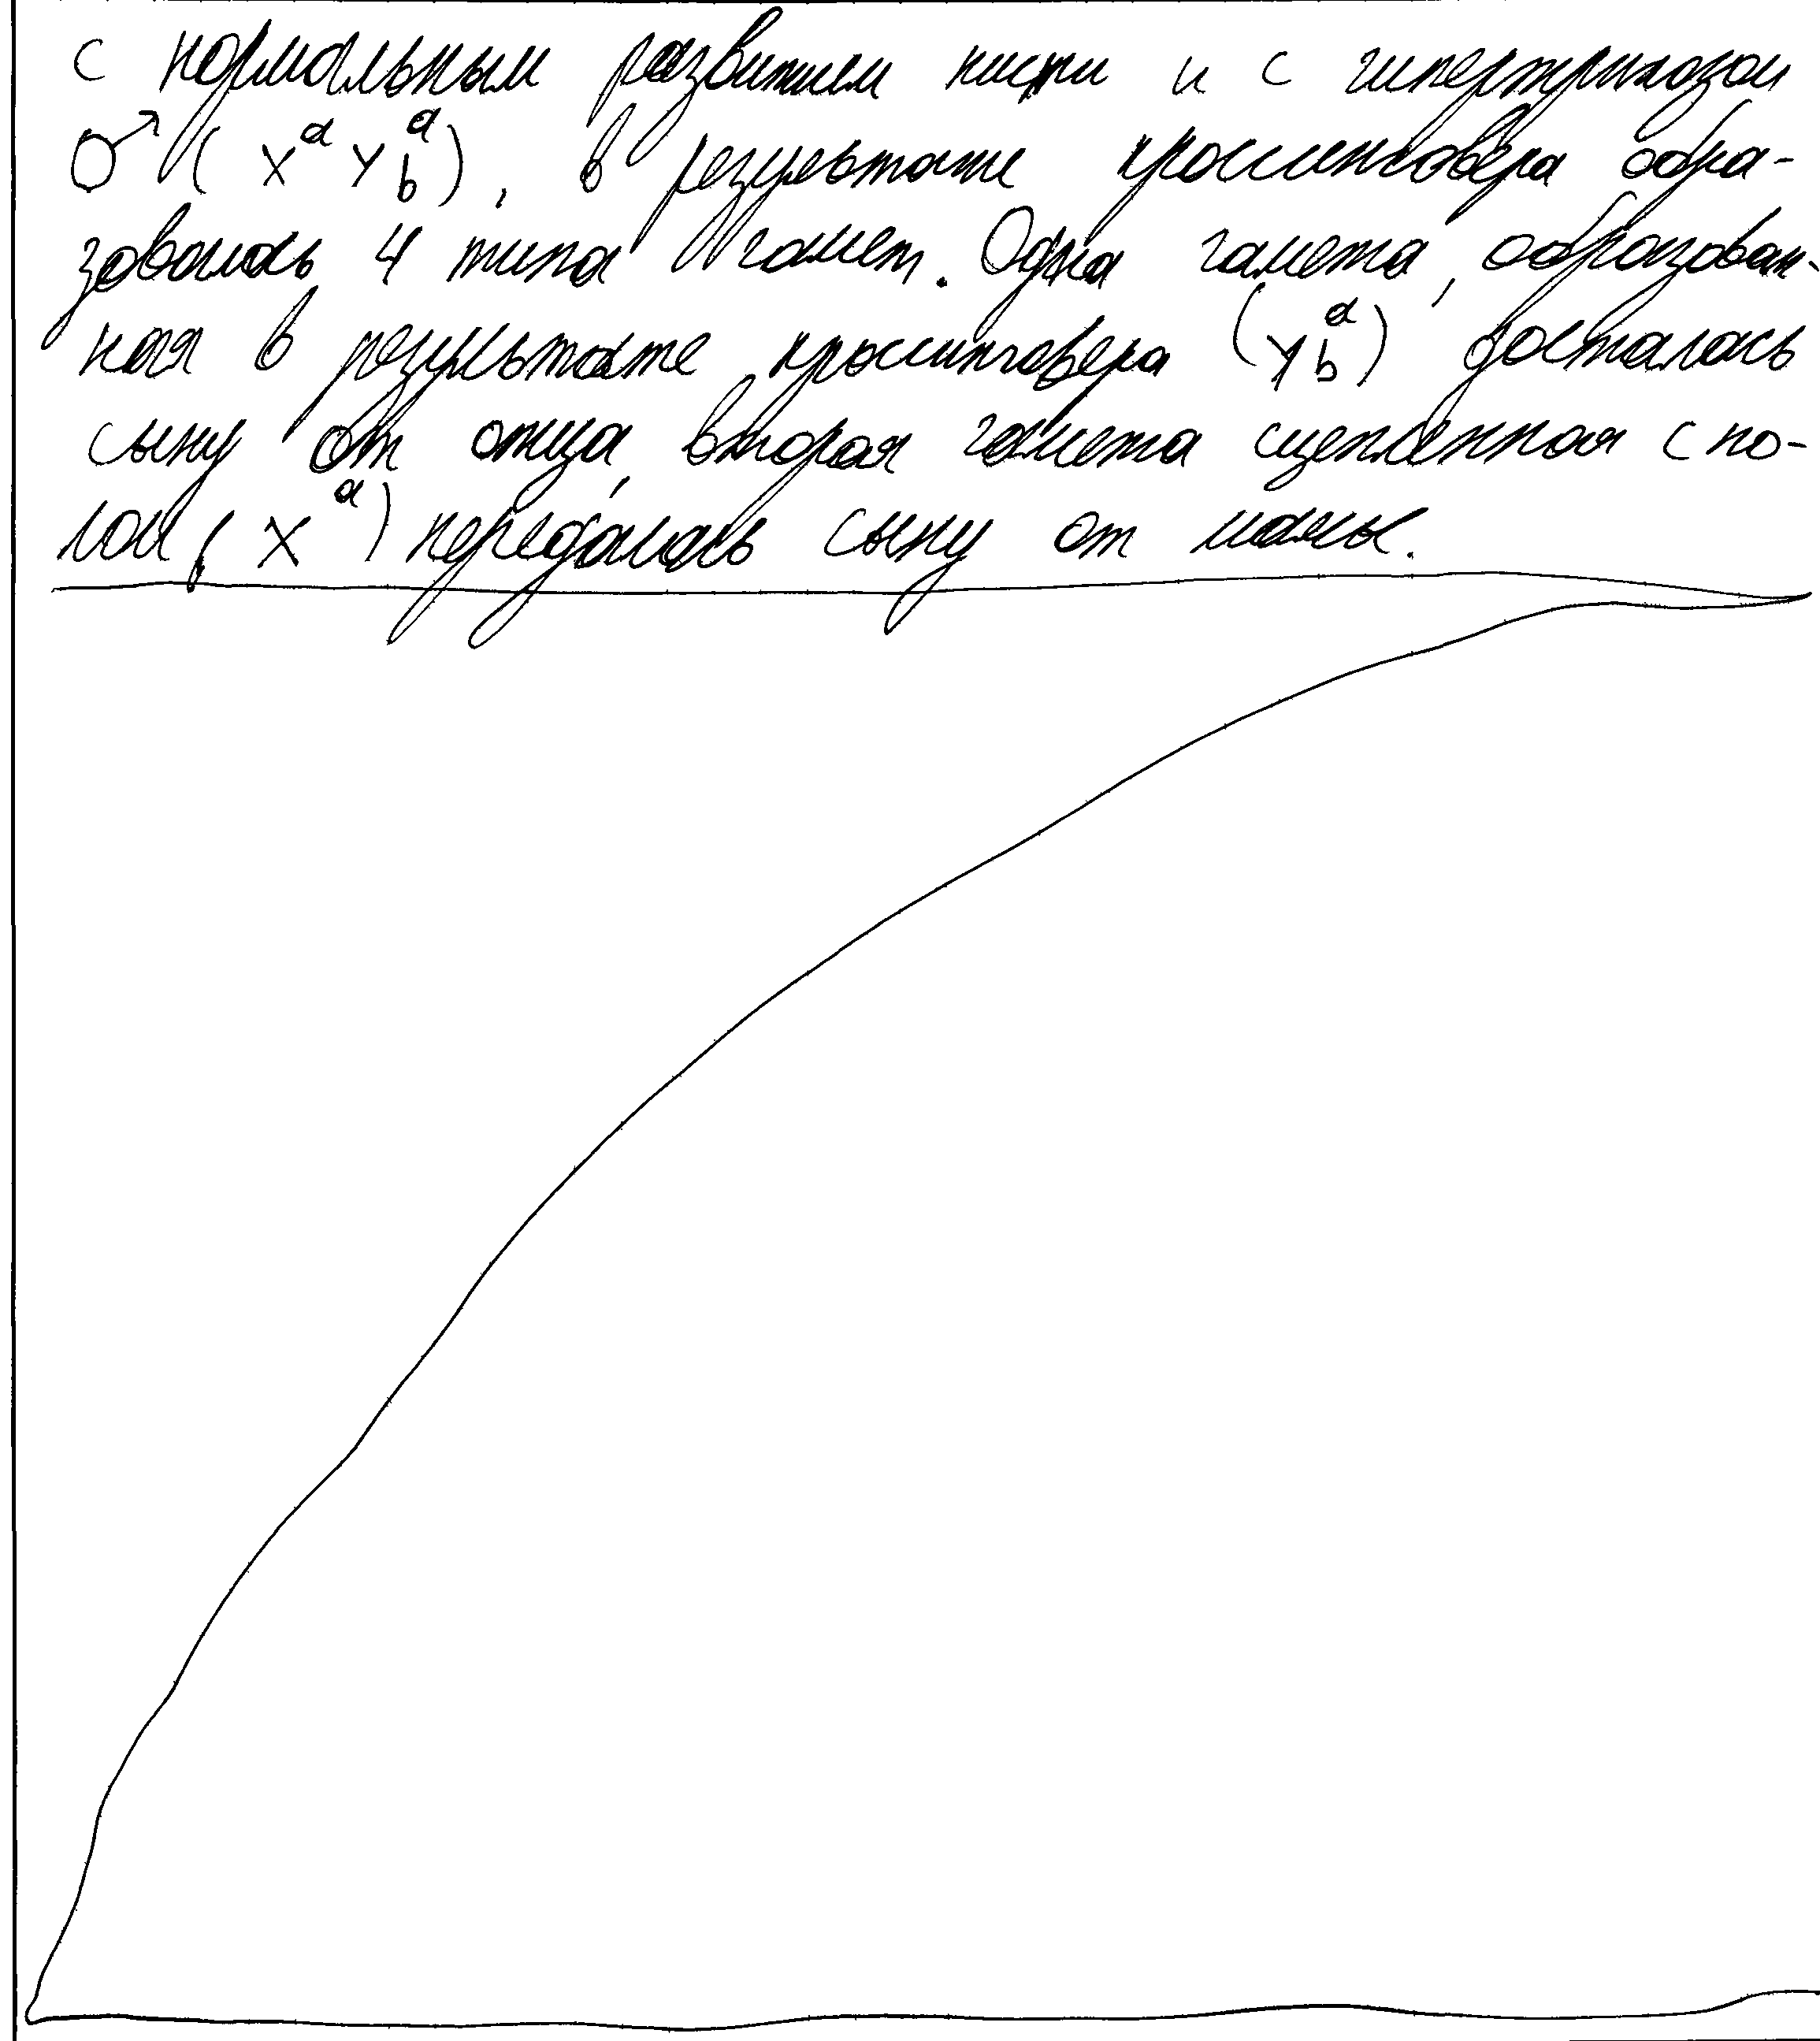 с нормальным развитием кисти и с гипертрихозом
♂ ( X^a Y_b^a ), в результате кроссинговера обра-
зовалось 4 типа гамет. Одна гамета, образован-
ная в результате кроссинговера (Y_b^a) досталась
сыну от отца, вторая гамета сцепленная с по-
лом ( X^a ) передалась сыну от мамы.